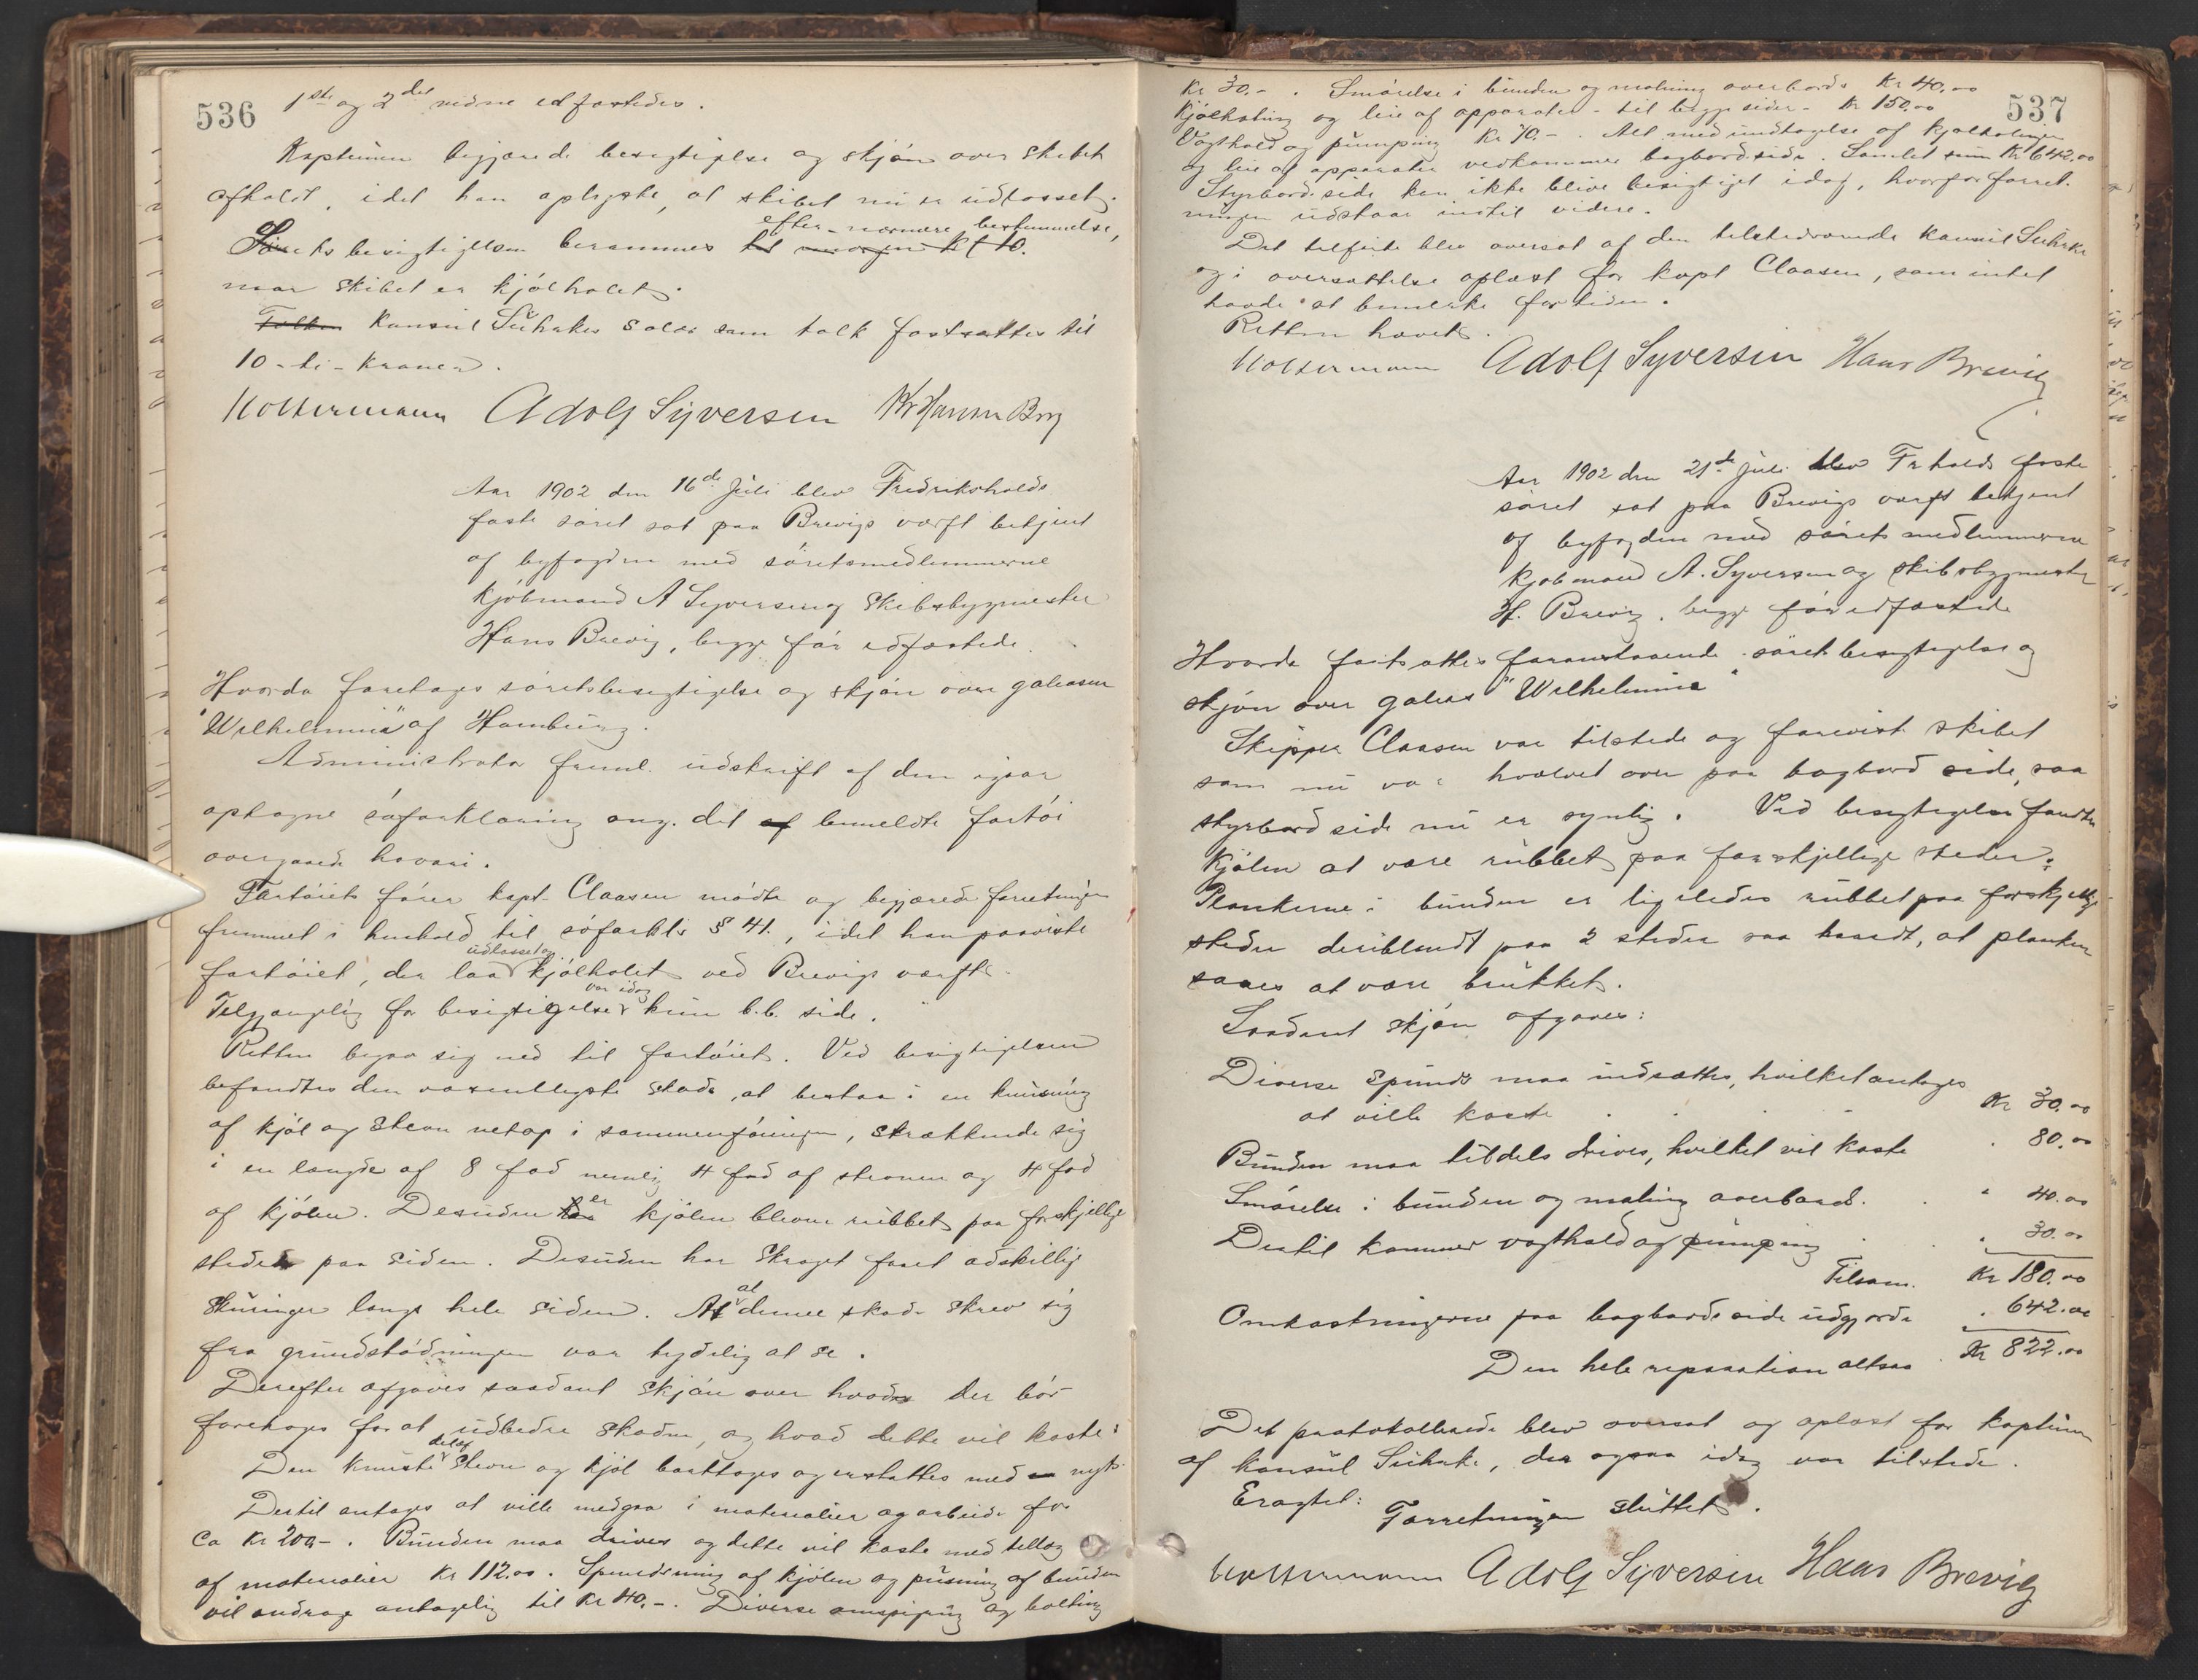 536
1ste og 2det vidne edfæstedes.
Kapteinen begjærede besigtigelse og skjön over skibet
afholdt, idet han oplyste, at skibet nu er udlosset.
efter nærmere bestemmelse,
Sörets besigtigelsen berammes til morgen kl 10.
naar skibet er kjölhalet.
Tolken Konsul Suhrkes salær som tolk fastsættes til
10 - ti - kroner.
Koltermann Adolf Syversen Kr Hansen Berg
Aar 1902 den 16de Juli blev Fredrikshalds
faste söret sat paa Brevigs værft betjent
af byfogden med söretsmedlemmerne
kjöbmand A Syversen og skibsbygmester
Hans Brevig, begge för edfæstede.
Hvorda foretoges söretsbesigtigelse og skjön over galeasen
"Wilhelmine" af Hamburg.
Administrator freml. udskrift af den igaar
optagne söforklaring ang. det af bemeldte fartöi
overgaaede havari.
Fartöiets förer kapt. Claasen mödte og begjærede forretningen
fremmet i henhold til söfartsl's § 41., idet han paaviste
udlosset og
fartöiet, der laa kjölhalet ved Brevigs værft.
var idag
Tilgjængelig for besigtigelse kun b.b. side.
Retten begav sig ned til fartöiet. Ved besigtigelsen
befandtes den væsentligste skade, at bestaa i en knusning
af kjöl og stevn netop i sammenföiningen, strækkende sig
i en længde af 8 fod nemlig 4 fod af stevnen og 4 fod
er
af kjölen. Desuden kjölen bleven rubbet paa forskjellige
steder paa siden. Desuden har skroget faaet adskillige
skuringer langs hele siden. At al denne skade skrev sig
fra grundstödningen var tydelig at se.
Derefter afgaves saadant skjön over hvad der bör
foretages for at udbedre skaden, og hvad dette vil koste:
del af
Den knuste stevn og kjöl borttages og erstattes med nyt.
Dertil antages at ville medgaa i materialier og arbeide for
ca Kr 200,- . Bunden maa drives og dette vil koste med tillæg
af materialier Kr 112.00. Spundsning af kjölen og pusning af bunden
vil andrage antagelig til Kr 40,-. Diverse omspigring og bolting
537
Kr 30.- . Smörelse i bunden og malning overbords Kr 40,00
Kjölhaling og leie af apparater - til begge sider - Kr 150.00
Vagthold og pumping Kr 70.- . Alt med undtagelse af kjölhalingen
og leie af apparater vedkommer bagbordside. Samlet sum Kr 642.00
Styrbordside kan ikke blive besigtiget idag, hvorfor forret-
ningen udstaar indtil videre.
Det tilförte blev oversat af den tilstedeværende konsul Suhrke
og i oversættelse oplæst for kapt Claasen, som intet
havde at bemerke for tiden.
Retten hævet.
Koltermann Adolf Syversen Hans Brevig
Aar 1902 den 21de Juli blev Frhalds faste
söret sat paa Brevigs værft betjent
af byfogden med sörets medlemmerne
kjöbmand A. Syversen og skibsbygmester
H. Brevig, begge för edfæstede
Hvorda fortsattes foranstaaende söretsbesigtigelse og
skjön over galeas "Wilhelmine"
Skipper Claasen var tilstede og foreviste skibet
som nu var hvælvet over paa bagbord side, saa
styrbord side nu er synlig. Ved besigtigelse fandtes
kjölen at være rubbet paa forskjellige steder.
Plankerne i bunden er ligeledes rubbet paa forskjellige
steder deriblandt paa 2 steder saa haardt, at planken
saaes at være brukket.
Saadant skjön afgaves:
Diverse spunds maa indsættes, hvilket antages
at ville koste Kr 30.00
Bunden maa tildels drives, hvilket vil koste " 80.00
Smörelse i bunden og maling overbord. " 40.00
Dertil kommer vagthold og pumping " 30.00
Tilsam. Kr 180.00
Omkostningerne paa bagbords side udgjorde " 642.00
Den hele reparation altsaa Kr 822.00
Det protokollerede blev oversat og oplæst for kapteinen
af konsul Suhrke, der ogsaa idag var tilstede.
Eragtet:
Forretningen sluttet.
Koltermann Adolf Syversen Hans Brevig